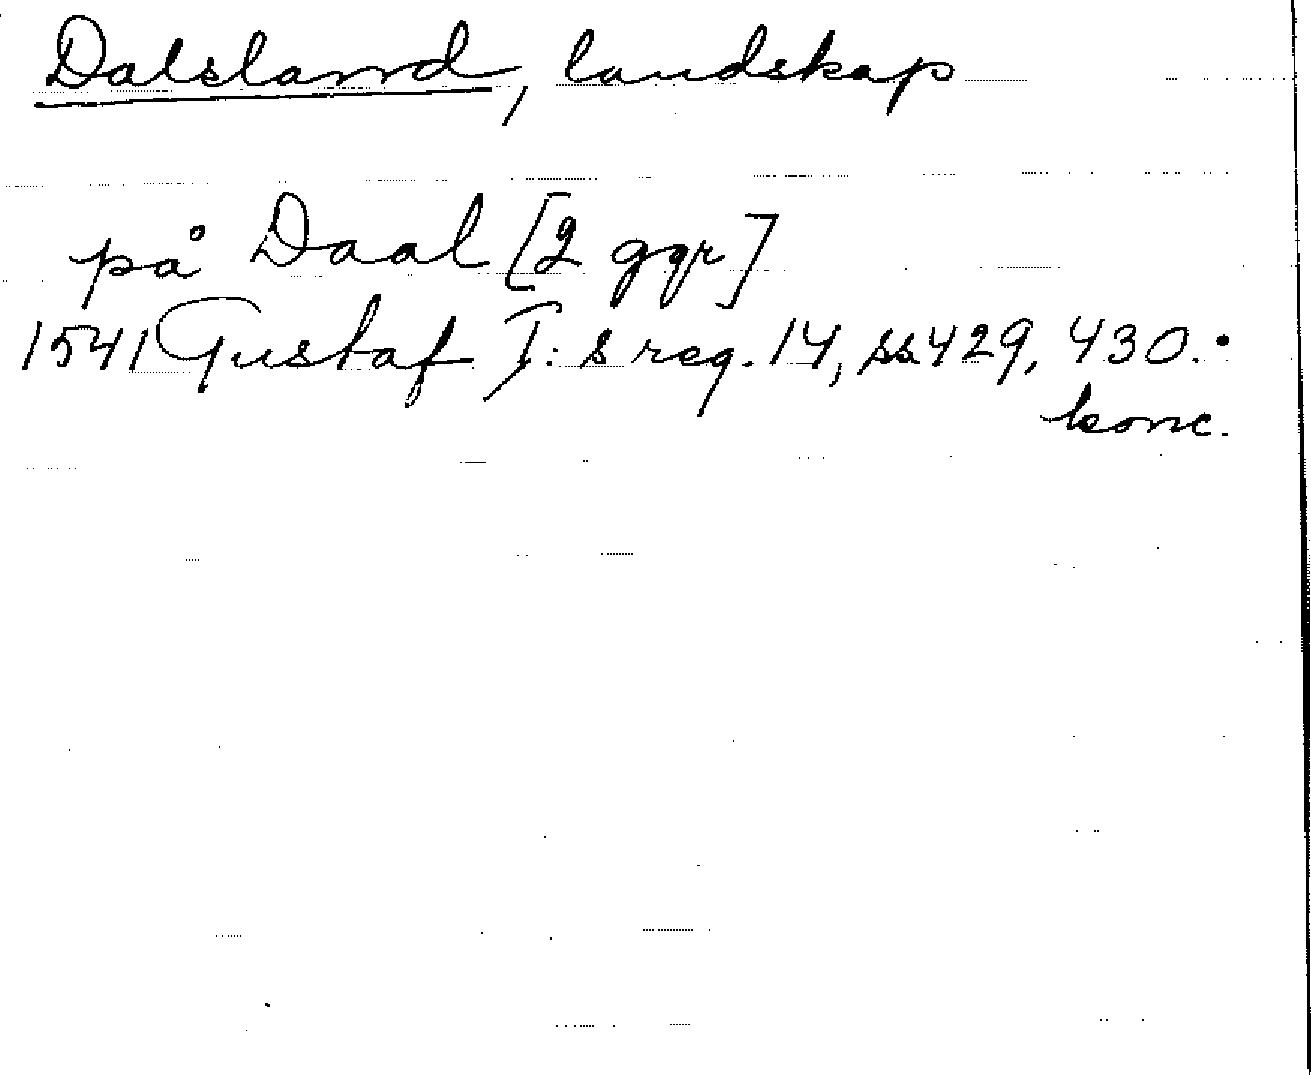 Dalsland, landskap
på Daal [2 ggr]
1541 Gustaf I:s reg. 14, ss 429, 430.
konc.